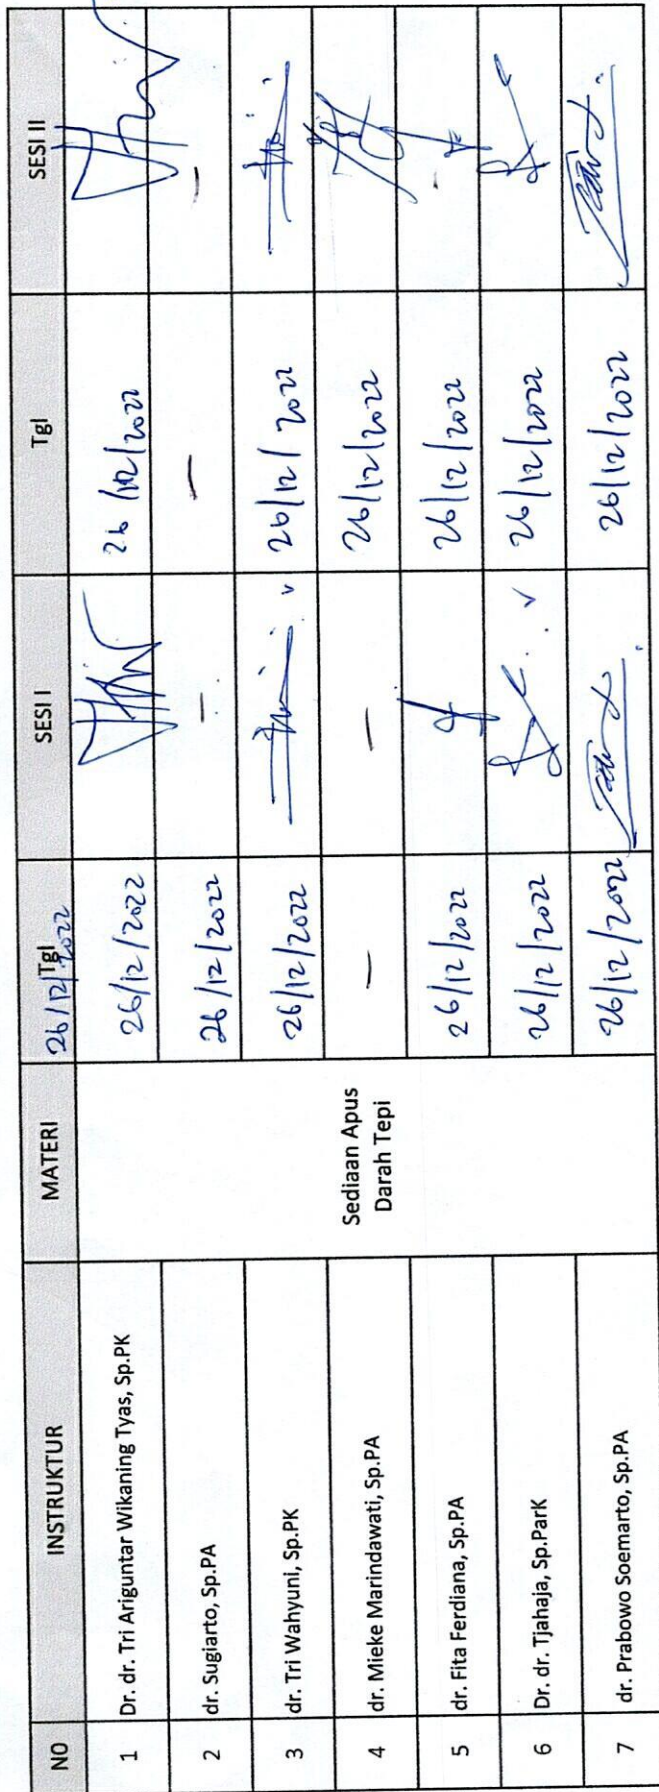 NO INSTRUKTUR MATERI Tgl SESI I Tgl SESI II
26/12/2022
1 Dr. dr. Tri Ariguntar Wikaning Tyas, Sp.PK 26/12/2022 26/12/2022
2 dr. Sugiarto, Sp.PA 26/12/2022 - - -
3 dr. Tri Wahyuni, Sp.PK 26/12/2022 26/12/2022
4 dr. Mieke Marindawati, Sp.PA - - 26/12/2022
Sediaan Apus
Darah Tepi
5 dr. Fita Ferdiana, Sp.PA 26/12/2022 26/12/2022
6 Dr. dr. Tjahaja, Sp.ParK 26/12/2022 26/12/2022
7 dr. Prabowo Soemarto, Sp.PA 26/12/2022 26/12/2022